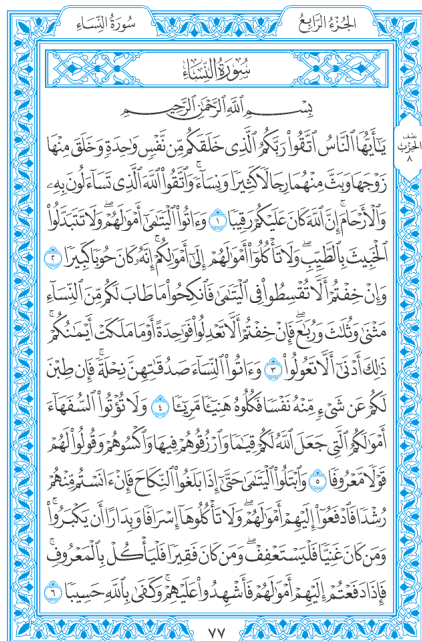 سُورَةُ النِّسَاءِ
الجُزْءُ الرَّابِعُ
سُورَةُ النِّسَاءِ
بِسْمِ اللَّهِ الرَّحْمَٰنِ الرَّحِيمِ
نصف
الحزب
٨
يَٰٓأَيُّهَا ٱلنَّاسُ ٱتَّقُواْ رَبَّكُمُ ٱلَّذِي خَلَقَكُم مِّن نَّفْسٖ وَٰحِدَةٖ وَخَلَقَ مِنْهَا
زَوْجَهَا وَبَثَّ مِنْهُمَا رِجَالٗا كَثِيرٗا وَنِسَآءٗۚ وَٱتَّقُواْ ٱللَّهَ ٱلَّذِي تَسَآءَلُونَ بِهِۦ
وَٱلْأَرْحَامَۚ إِنَّ ٱللَّهَ كَانَ عَلَيْكُمْ رَقِيبٗا ١ وَءَاتُواْ ٱلْيَتَٰمَىٰٓ أَمْوَٰلَهُمْۖ وَلَا تَتَبَدَّلُواْ
ٱلْخَبِيثَ بِٱلطَّيِّبِۖ وَلَا تَأْكُلُوٓاْ أَمْوَٰلَهُمْ إِلَىٰٓ أَمْوَٰلِكُمْۚ إِنَّهُۥ كَانَ حُوبٗا كَبِيرٗا ٢
وَإِنْ خِفْتُمْ أَلَّا تُقْسِطُواْ فِي ٱلْيَتَٰمَىٰ فَٱنكِحُواْ مَا طَابَ لَكُم مِّنَ ٱلنِّسَآءِ
مَثْنَىٰ وَثُلَٰثَ وَرُبَٰعَۖ فَإِنْ خِفْتُمْ أَلَّا تَعْدِلُواْ فَوَٰحِدَةً أَوْ مَا مَلَكَتْ أَيْمَٰنُكُمْۚ
ذَٰلِكَ أَدْنَىٰٓ أَلَّا تَعُولُواْ ٣ وَءَاتُواْ ٱلنِّسَآءَ صَدُقَٰتِهِنَّ نِحْلَةٗۚ فَإِن طِبْنَ
لَكُمْ عَن شَيْءٖ مِّنْهُ نَفْسٗا فَكُلُوهُ هَنِيٓـٔٗا مَّرِيٓـٔٗا ٤ وَلَا تُؤْتُواْ ٱلسُّفَهَآءَ
أَمْوَٰلَكُمُ ٱلَّتِي جَعَلَ ٱللَّهُ لَكُمْ قِيَٰمٗا وَٱرْزُقُوهُمْ فِيهَا وَٱكْسُوهُمْ وَقُولُواْ لَهُمْ
قَوْلٗا مَّعْرُوفٗا ٥ وَٱبْتَلُواْ ٱلْيَتَٰمَىٰ حَتَّىٰٓ إِذَا بَلَغُواْ ٱلنِّكَاحَ فَإِنْ ءَانَسْتُم مِّنْهُمْ
رُشْدٗا فَٱدْفَعُوٓاْ إِلَيْهِمْ أَمْوَٰلَهُمْۖ وَلَا تَأْكُلُوهَآ إِسْرَافٗا وَبِدَارًا أَن يَكْبَرُواْۚ
وَمَن كَانَ غَنِيّٗا فَلْيَسْتَعْفِفْۖ وَمَن كَانَ فَقِيرٗا فَلْيَأْكُلْ بِٱلْمَعْرُوفِۚ
فَإِذَا دَفَعْتُمْ إِلَيْهِمْ أَمْوَٰلَهُمْ فَأَشْهِدُواْ عَلَيْهِمْۚ وَكَفَىٰ بِٱللَّهِ حَسِيبٗا ٦
٧٧